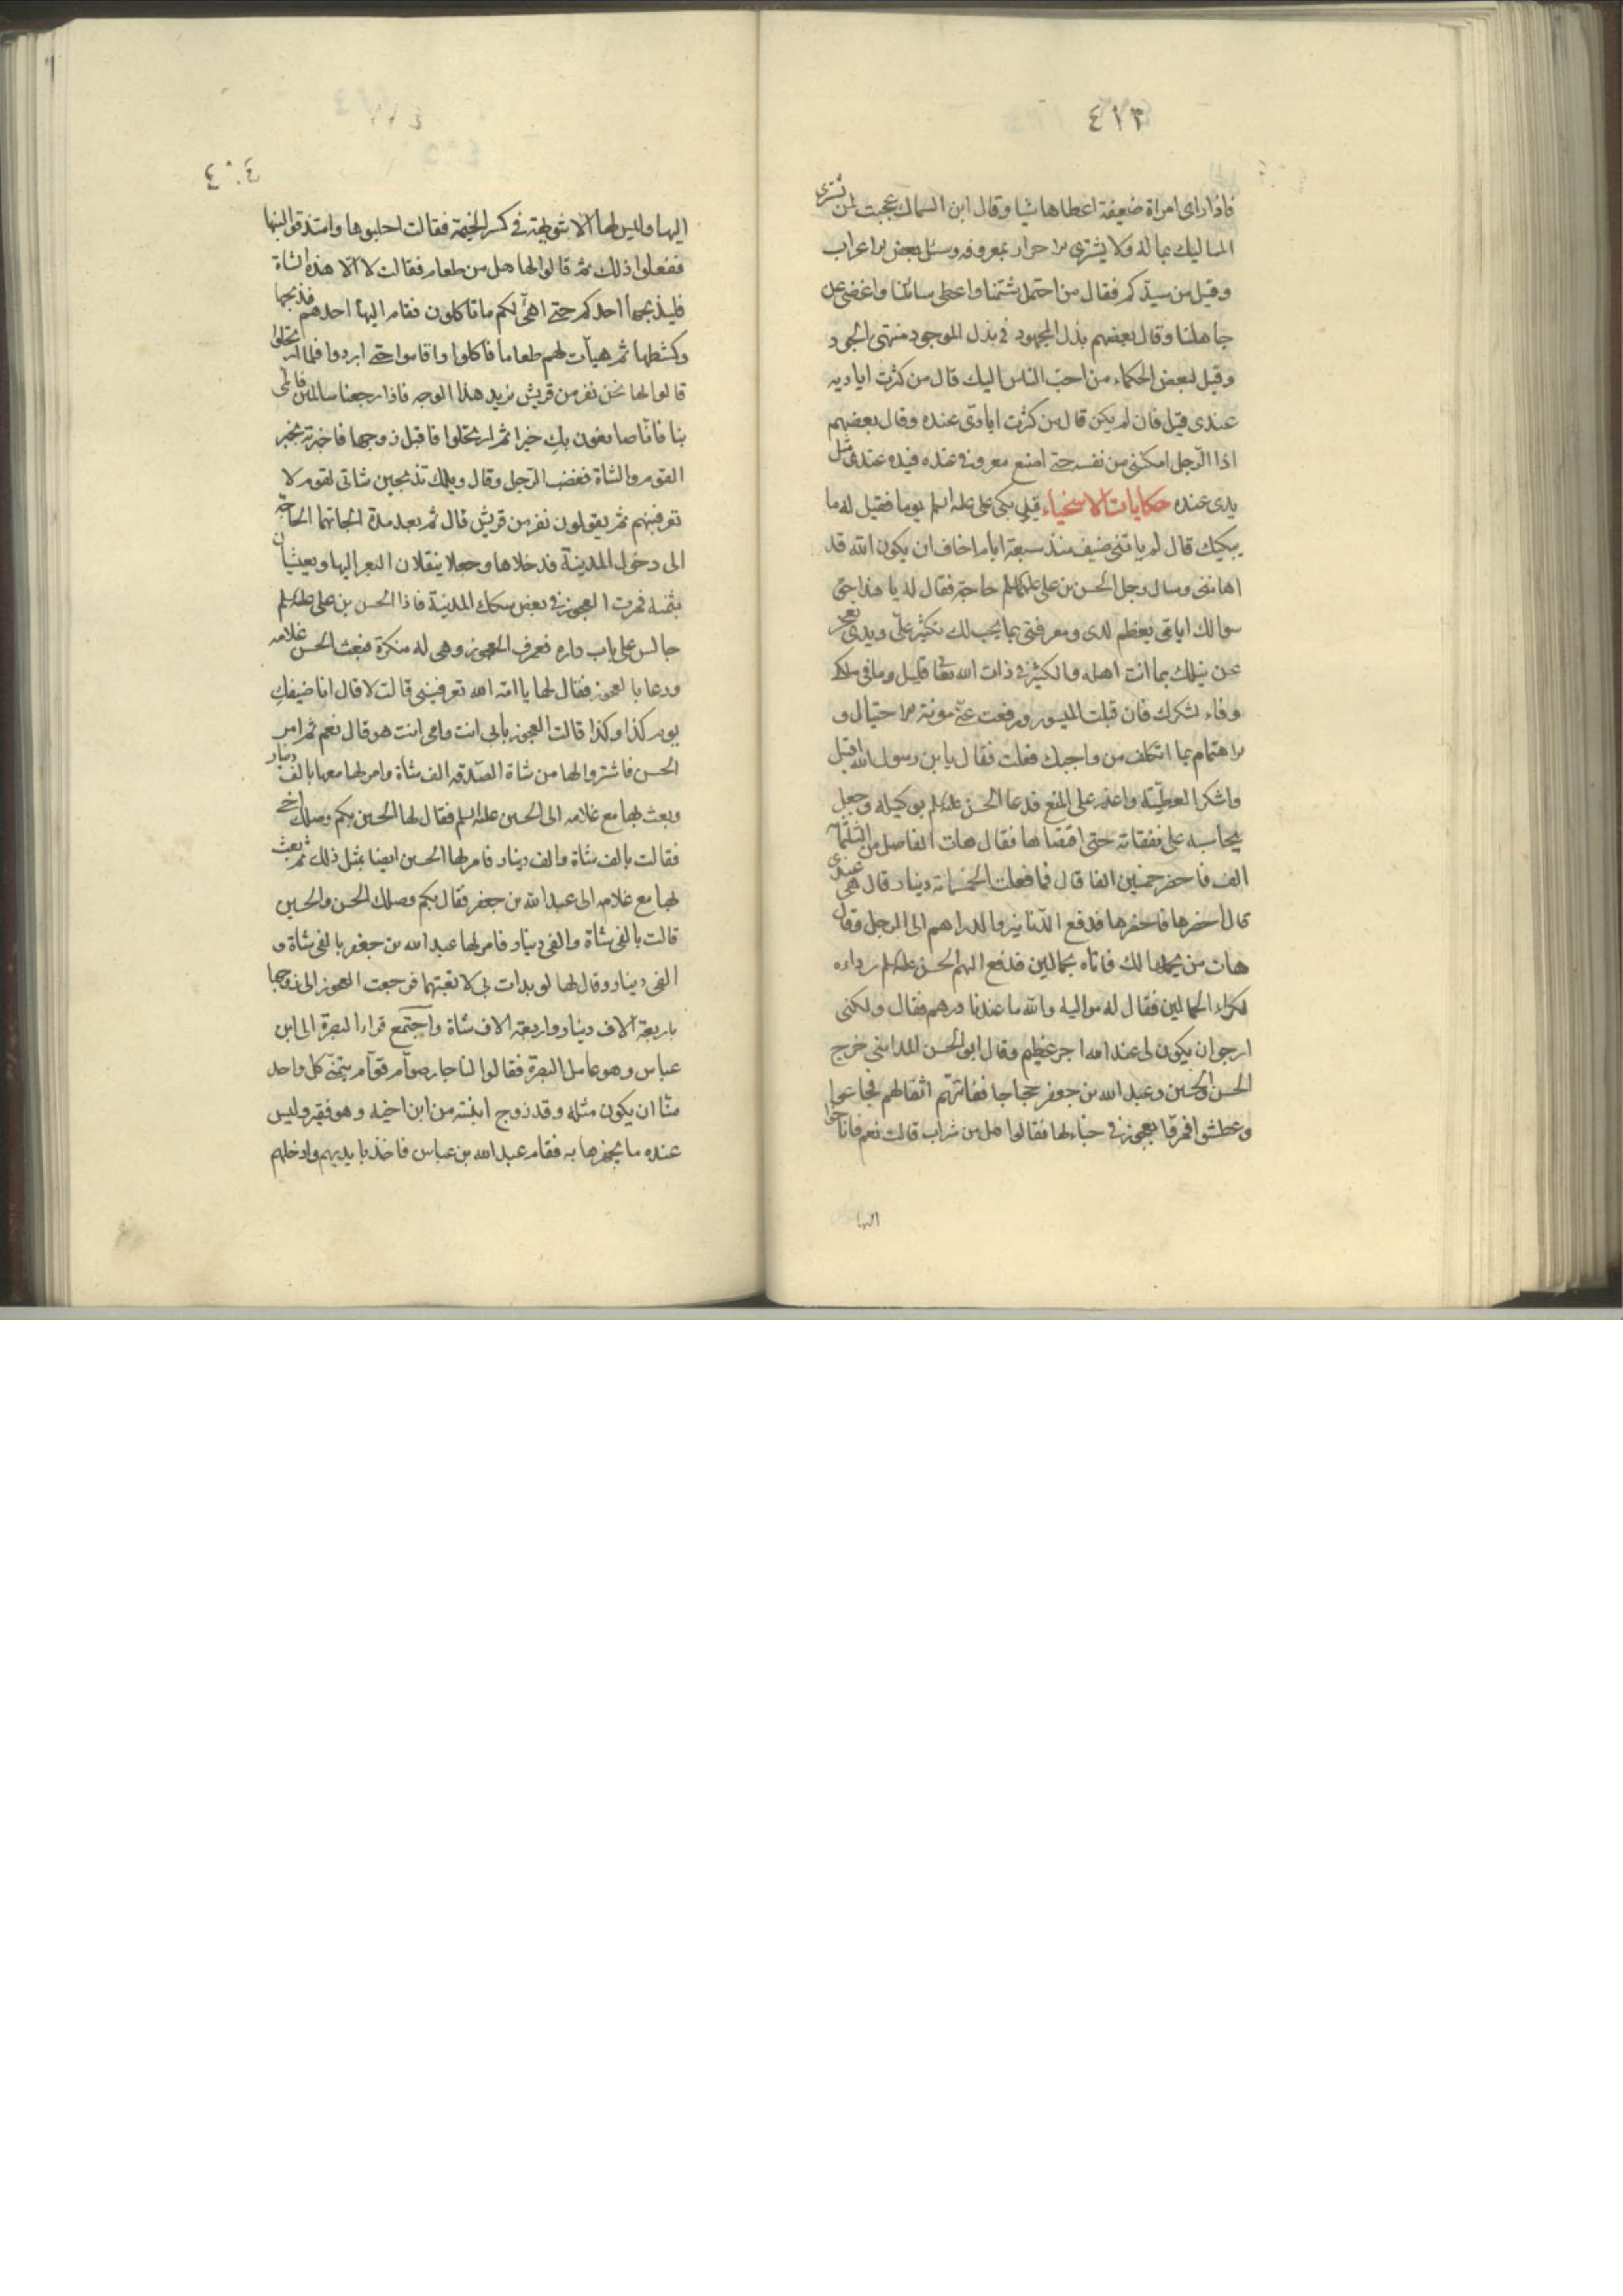 ٤١٣
فاذا راى امراة ضعيفة اعطاها شيا وقال ابن السماك عجبت لمن يشترى
المماليك بماله ولا يشترى الاحرار بمعروفه وسئل بعض الاعراب
وقيل من سيدكم فقال من احتمل شتمنا واعطى سائلنا واغضى عن
جاهلنا وقال بعضهم بذل المجهود فى بذل الموجود منتهى الجود
وقيل لبعض الحكماء من احبّ الناس اليك قال من كثرت اياديه
عندى قيل فان لم يكن قال من كثرت ايادىّ عنده وقال بعضهم
اذا الرّجل امكننى من نفسه حتى امنع معروفى عنده فيده عندى مثل
يدى عنده حكايات الاسخياء قيل بكى على علیه السلم يوما فقيل له ما
يبكيك قال لم ياتنى ضيف منذ سبعة ايام اخاف ان يكون الله قد
اهاننى وسال رجل الحسن بن على علیهما السلم حاجة فقال له يا هذا حق
سوالك اياى يعظم لدى ومعرفتى بما يجب لك تكثر علىّ ويدى تعجز
عن نيلك بما انت اهله والكثير فى ذات الله تعا قليل وما فى ملكى
وفاء لشكرك فان قبلت الميسور ورفعت عنّى مونة الاحتيال و
الاهتمام بما اتكلف من واجبك فعلت فقال يا بن رسول الله اقبل
واشكر العطيّة واعذر على المنع فدعا الحسن علیه السلم بوكيله وجعل
يحاسبه على نفقاته حتى اقتضاها فقال هات الفاضل من الثلثمائة
الف فاحضر خمسين الفا قال فما فعلت الخمسمائة دينار قال هى عندى
قال احضرها فاحضرها فدفع الدّنانير والدراهم الى الرجل وقال
هات من يحملها لك فاتاه بحمالين فدفع اليهم الحسن علیه السلم رداءه
لكراء الحمالين فقال له مواليه والله ما عندنا درهم فقال ولكنى
ارجو ان يكون لى عند الله اجر عظيم وقال ابو الحسن المداينى خرج
الحسن والحسين وعبد الله بن جعفر حجاجا ففاتتهم اثقالهم فجاعوا
وعطشوا فمرّوا بعجوز فى خباء لها فقالوا هل من شراب قالت نعم فاناخوا
اليها
٤٠٤
اليها وليس لها الّا شويهة فى كسر الخيمة فقالت احلبوها وامتذقوا لبنها
ففعلوا ذلك ثم قالوا لها هل من طعام فقالت لا الّا هذه الشاة
فليذبحها احدكم حتى اهيّئ لكم ما تاكلون فقام اليها احدهم فذبحها
وكشطها ثم هيأت لهم طعاما فاكلوا واقاموا حتى ابردوا فلما ارتحلوا
قالوا لها نحن نفر من قريش نريد هذا الوجه فاذا رجعنا سالمين فالمى
بنا فانّا صانعون بك خيرا ثم ارتحلوا فاقبل زوجها فاخبرته بخبر
القوم والشاة فغضب الرّجل وقال ويلك تذبحين شاتى لقوم لا
تعرفينهم ثم يقولون نفر من قريش قال ثم بعد مدة الجاتهما الحاجة
الى دخول المدينة فدخلاها وجعلا ينقلان البعر اليها ويعيشان
بثمنه فمرت العجوز فى بعض سكك المدينة فاذا الحسن بن على علیه السلم
جالس على باب داره فعرف العجوز وهى له منكرة فبعث الحسن غلامه
ودعا بالعجوز فقال لها يا امة الله تعرفيننى قالت لا قال انا ضيفك
يوم كذا وكذا قالت العجوز بأبى انت وامى انت هو قال نعم ثم امر
الحسن فاشتروا لها من شاة الصّدقة الف شاة وامر لها معها بالف دينار
وبعث بها مع غلامه الى الحسين علیه السلم فقال لها الحسين بكم وصلك اخى
فقالت بالف شاة والف دينار فامر لها الحسين ايضا بمثل ذلك ثم بعث
بها مع غلامه الى عبد الله بن جعفر فقال بكم وصلك الحسن والحسين
قالت بالفى شاة والفى دينار فامر لها عبد الله بن جعفر بالفى شاة و
الفى دينار وقال لها لو بدات بى لاتعبتهما فرجعت العجوز الى زوجها
باربعة آلاف دينار واربعة الاف شاة واجتمع قراء البصرة الى ابن
عباس وهو عامل البصرة فقالوا لنا جار صوّام قوّام يتمنّى كل واحد
منّا ان يكون مثله وقد زوج ابنته من ابن اخيه وهو فقير وليس
عنده ما يجهزها به فقام عبد الله بن عباس فاخذ بايديهم وادخلهم